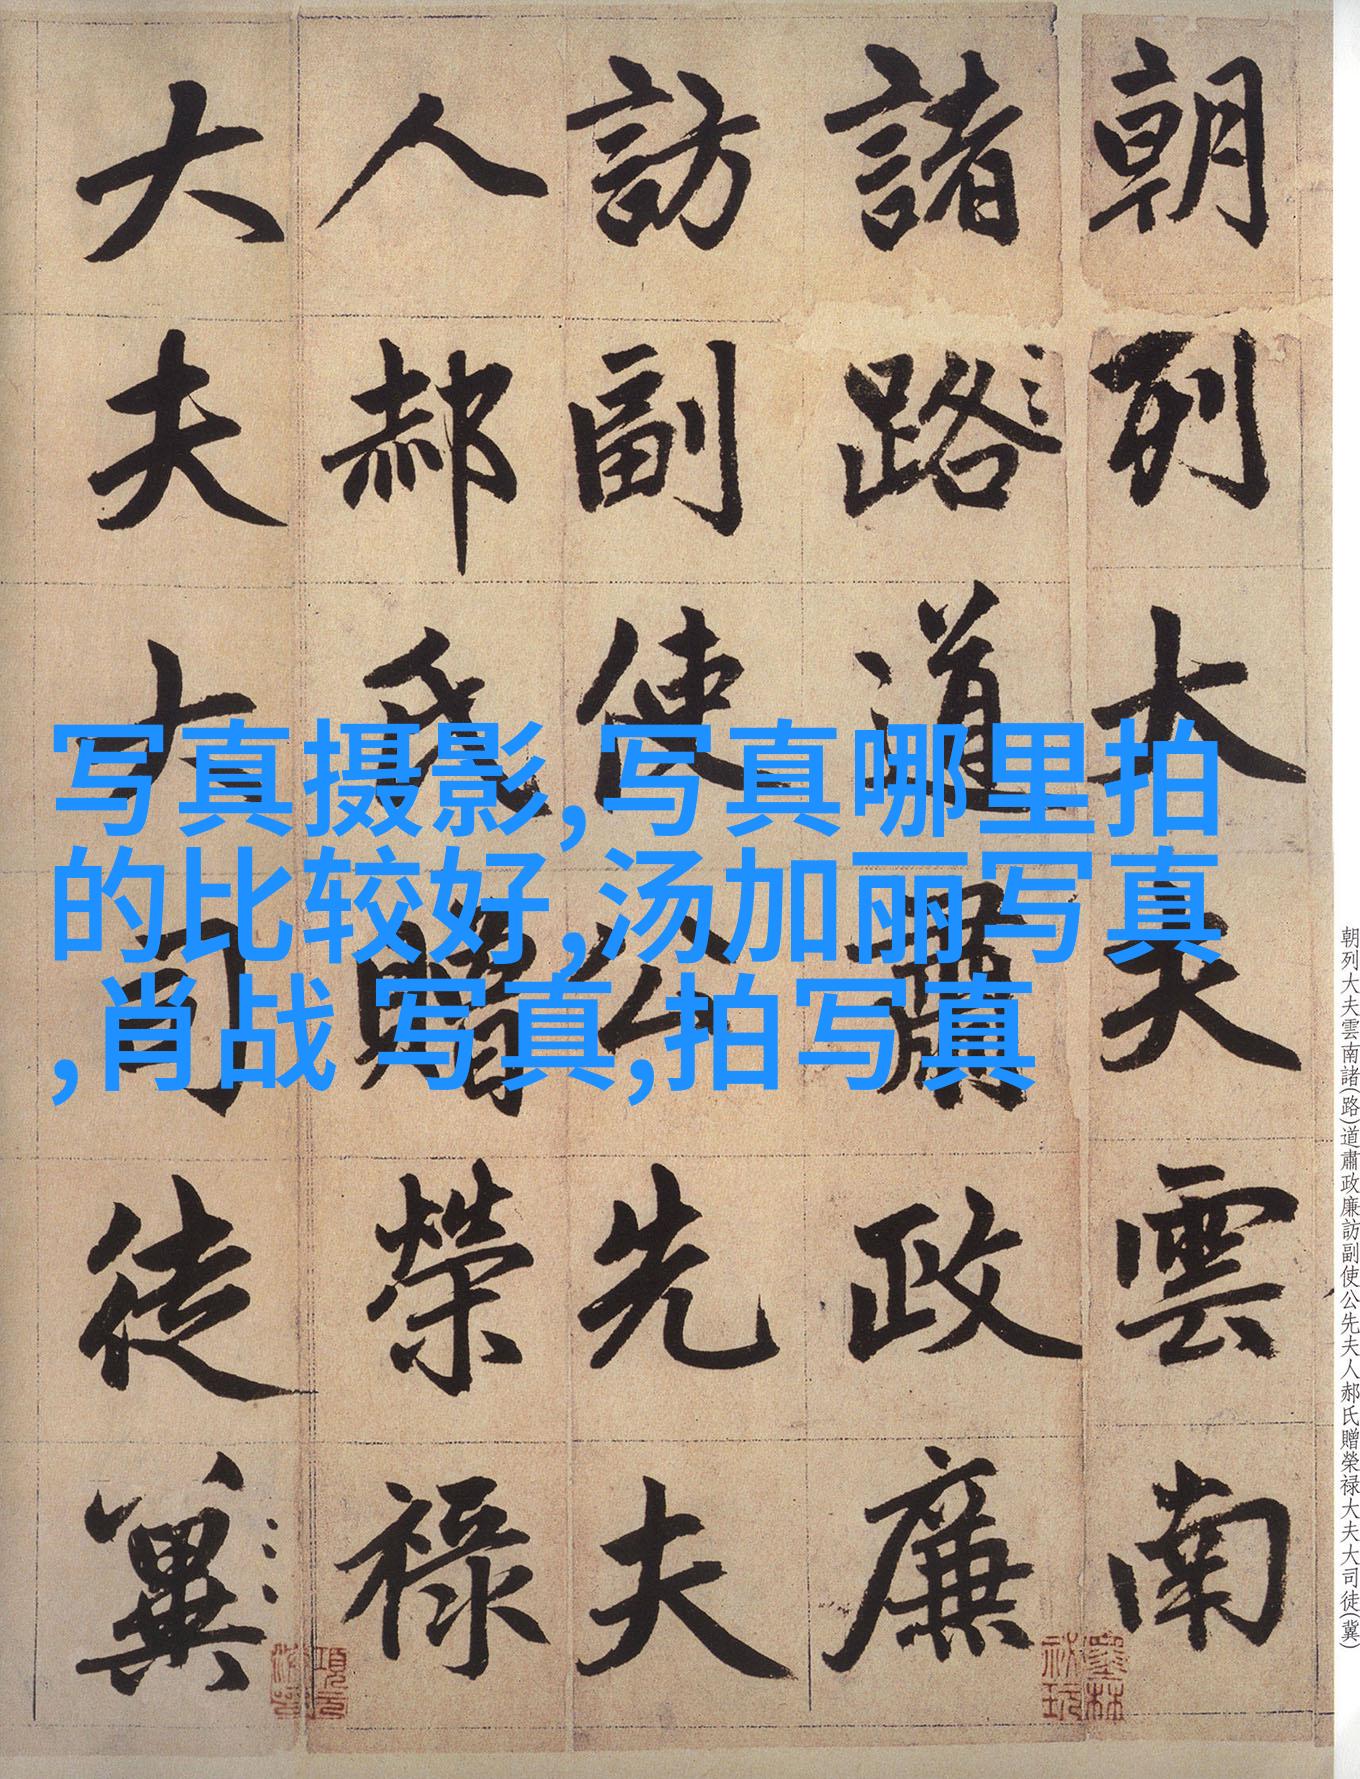 朝列大夫雲南
諸路道肅政廉
訪副使公先夫
人郝氏贈榮祿
大夫大司徒冀
写真摄影,写真哪里拍
的比较好,汤加丽写真
,肖战 写真,拍写真
朝列大夫雲南諸(路)道肅政廉訪副使公先夫人郝氏贈榮禄大夫大司徒(冀)